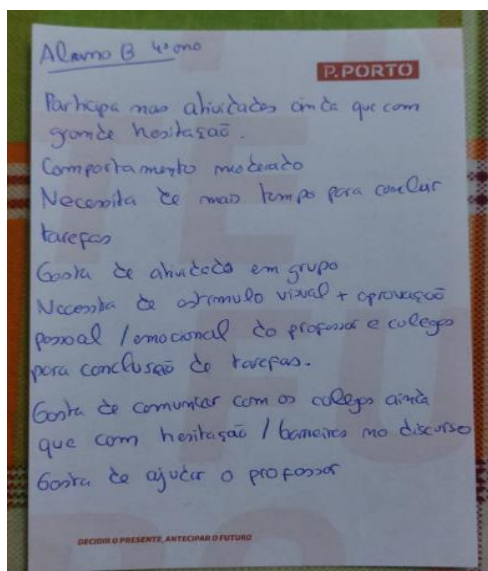 Aluno B 4º ano
P.PORTO
Participa nas atividades ainda que com
grande hesitação.
Comportamento moderado
Necessita de mais tempo para concluir
tarefas
Gosta de atividades em grupo
Necessita de estimulo visual + aprovação
pessoal / emocional do professor e colegas
para conclusão de tarefas.
Gosta de comunicar com os colegas ainda
que com hesitação / barreiras no discurso
Gosta de ajudar o professor
DECIDIR O PRESENTE, ANTECIPAR O FUTURO